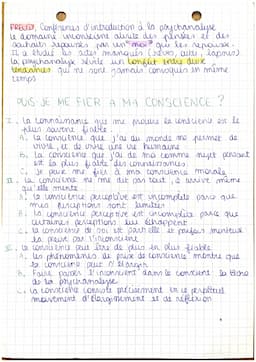 FREUD, Conférences d'introduction à la psychanalyse
Le domaine inconscient abrite des pensées et des
souhaits repoussés par un "moi" qui les repousse.
Il a étudié les actes manqués (rêves, lapsus)
la psychanalyse révèle un conflit entre deux
tendances qui ne sont jamais convoquées en même
temps
PUIS-JE ME FIER A MA CONSCIENCE ?
I. La connaissance que me procure la conscience est le
plus savoir fiable.
A. La conscience que j'ai du monde me permet de
vivre, et de vivre une vie humaine
B. La conscience que j'ai de moi comme sujet pensant
est la plus fiable des connaissances.
C. Je peux me fier à ma conscience morale
II. La conscience ne me dit pas tout, il arrive même
qu'elle mente.
A. La conscience perceptive est incomplète parce que
mes perceptions sont limitées
B. La conscience perceptive est incomplète parce que
certaines perceptions lui échappent
C. La conscience de soi est partielle et parfois menteuse
la preuve par l'inconscient
III. La conscience peut être de plus en plus fiable
A. Les phénomènes de prise de conscience montre que
la conscience peut s'élargir
B. Faire passer l'inconscient dans le conscient : la tâche
de la psychanalyse.
C. La conscience consiste précisément en ce perpétuel
mouvement d'élargissement et de réflexion